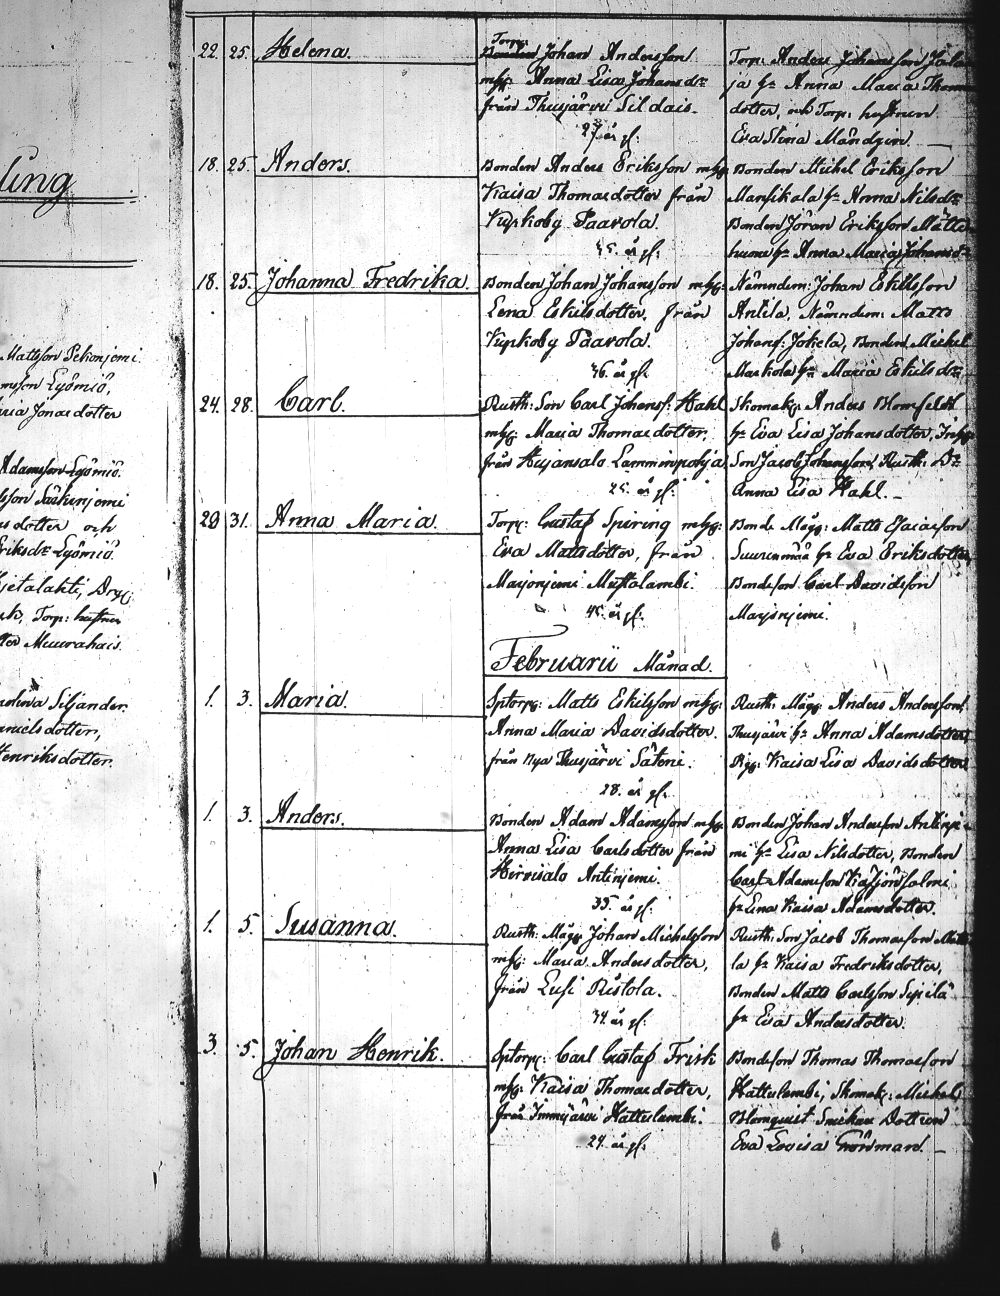 ling
Mattsson Pekonjemi
Lyömiö,
Maria Jonasdotter
Adamsson Lyömiö.
dotter och
Eriksdr Lyömiö.
Torp: hustrun
Siljander
dotter,
Henriksdotter.
22. 25. Helena.
Torp:
Bonden Johan Andersson
mhg: Anna Lisa Johansdr
från Thusjärvi Sildais.
27 år gl:
Torp: Anders Johansson
ja hr Anna Maria
dotter, och Torp: hustrun
Eva Stina Mändyin.
18. 25. Anders.
Bonden Anders Eriksson mhg:
Kaisa Thomasdotter från
Kyrkoby Paavola.
45. år gl:
Bonden Michel Eriksson
Mansikala hr Anna Nilsdr
Bonden Jöran Eriksson
hr Anna Maria Johansdr
18. 25. Johanna Fredrika.
Bonden Johan Johansson mhg:
Lena Eskilsdotter, från
Kyrkoby Paavola.
46. år gl:
Nämndem: Johan Eskilsson
Antila, Nämndem: Matts
Johanss: Jokela, Bonden Michel
Markola hr Maria Eskilsdr
24. 28. Carl.
Rusth: Son Carl Johanss: Hahl
mhg: Maria Thomasdotter,
från Kujansalo Lamminpohja
25. år gl:
Skomak: Anders Blomfeldt
hr Eva Lisa Johansdotter,
Son Jacob Johansson, Rusth: Dr
Anna Lisa Hahl.
29 31. Anna Maria.
Torp: Gustaf Spiring mhg:
Eva Mattsdotter, från
Marjonjemi Mustalambi.
45. år gl:
Bonde Måg: Matts Esaiasson
Suurenmäa hr Eva Eriksdotter,
Bondeson Carl Davidsson
Marjonjemi.
Februarii Månad.
1. 3. Maria.
Sptorp: Matts Eskilsson mhg:
Anna Maria Davidsdotter.
från Nya Thusjärvi Säteri.
28. år gl:
Rusth: Måg: Anders Andersson
Thusjärvi hr Anna Adamsdotter
Pig: Kaisa Lisa Davidsdotter
1. 3. Anders.
Bonden Adam Adamsson mhg:
Anna Lisa Carlsdotter från
Hirvisalo Antinjemi.
35. år gl:
Bonden Johan Andersson Antinje
mi hr Lisa Nilsdotter, Bonden
Carl Adamsson
hr Lena Kaisa Adamsdotter.
1. 5. Susanna.
Rusth: Måg: Johan Michelsson
mhg: Maria Andersdotter,
från Lusi Ristola.
34 år gl:
Rusth: Son Jacob Thomasson
la hr Kaisa Fredriksdotter,
Bonden Matts Carlsson Sipilä
hr Eva Andersdotter.
3. 5. Johan Henrik.
Sptorp: Carl Gustaf Frisk
mhg: Kaisa Thomasdotter,
från Immjärvi Hattulambi.
24. år gl:
Bondeson Thomas Thomasson
Hattulambi, Skomak: Michel
Blomqvist Snickar Dottren
Eva Lovisa Grönmard.